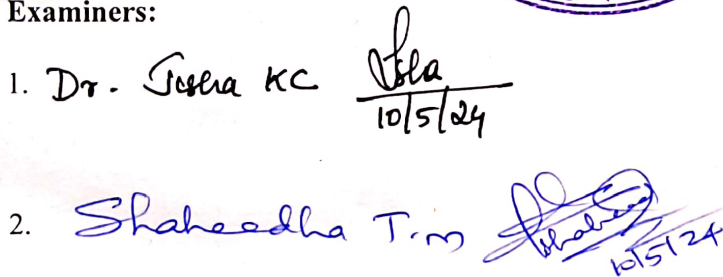 Examiners:
1. Dr. Jisha KC
10/5/24
2. Shaheedha T.m
10/5/24